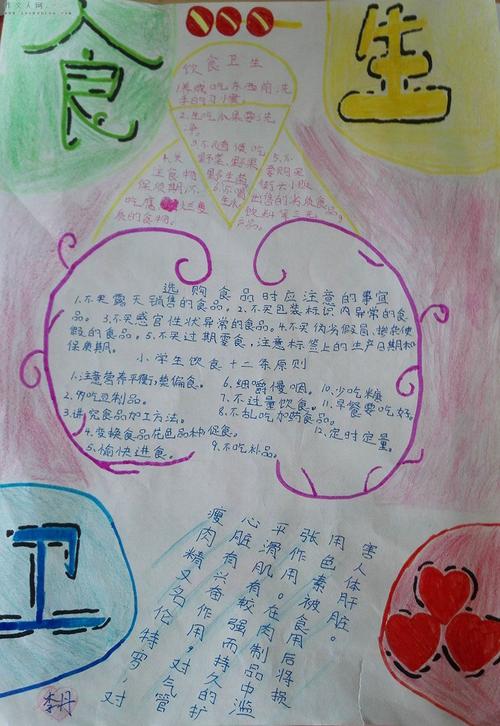 食
生
饮食卫生
1.养成吃东西前洗
手的习惯。
2.生吃瓜果要洗
净。
3.不随便吃
野菜、野果
4.关
主食物
保质期,不
吃腐
质的食物。
5.不
要购买
街头小贩
出售的劣质食品,
饮料等三无
产品。
选购食品时应注意的事宜
1.不买露天销售的食品。2.不买包装标识内异常的食
品。3.不买感官性状异常的食品。4.不买伪劣假冒、掺杂使
假的食品。5.不买过期零食,注意标签上的生产日期和
保质期。
小学生饮食十二条原则
1.注意营养平衡,禁偏食。
2.常吃豆制品。
3.讲究食品加工方法。
4.变换食品花色品种促食。
5.愉快进食。
6.细嚼慢咽。
7.不过量饮食。
8.不乱吃加药食品。
9.不吃补品。
10.少吃糖
11.早餐要吃好,
12.定时定量。
瘦肉精又名伦特罗,对
心脏有兴奋作用,对气管
平滑肌有较强而持久的扩
张作用。在肉制品中滥
用色素被食用后将损
害人体肝脏。
卫
李丹